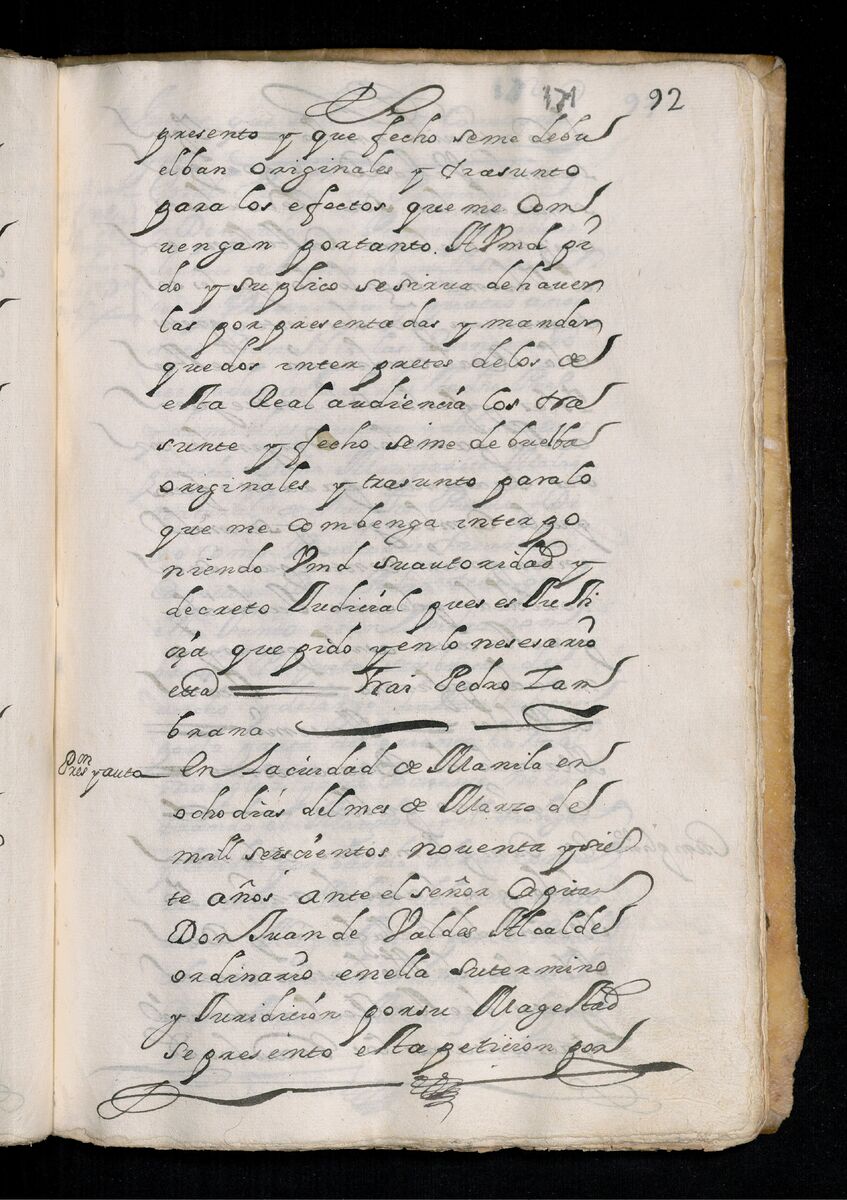 171 92
presento y que fecho seme debu
elban originales y trasunto
para los efectos que me Com
vengan portanto. A Vmd pi
do y suplico sesirva dehaver
las por presentadas y mandar
quedos interpretes delos de
esta Real audiencia los tra
sunte y fecho seime debuelba
originales y trasunto paralo
que me Combenga interpo
niendo Vmd suautoridad y
decreto Judicial pues es Justi
çia que pido yenlo nesesario
ettta Frai Pedro Zam
brana
Preson y auto En Laciudad de Manila en
ocho dias del mes de Marzo de
mill seiscientos noventa ysie
te años ante el señor Capitan
Don Juan de Valdes Alcalde
ordinario enella sutermino
y Juridición porsu Magestad
sepresento esta peticion por